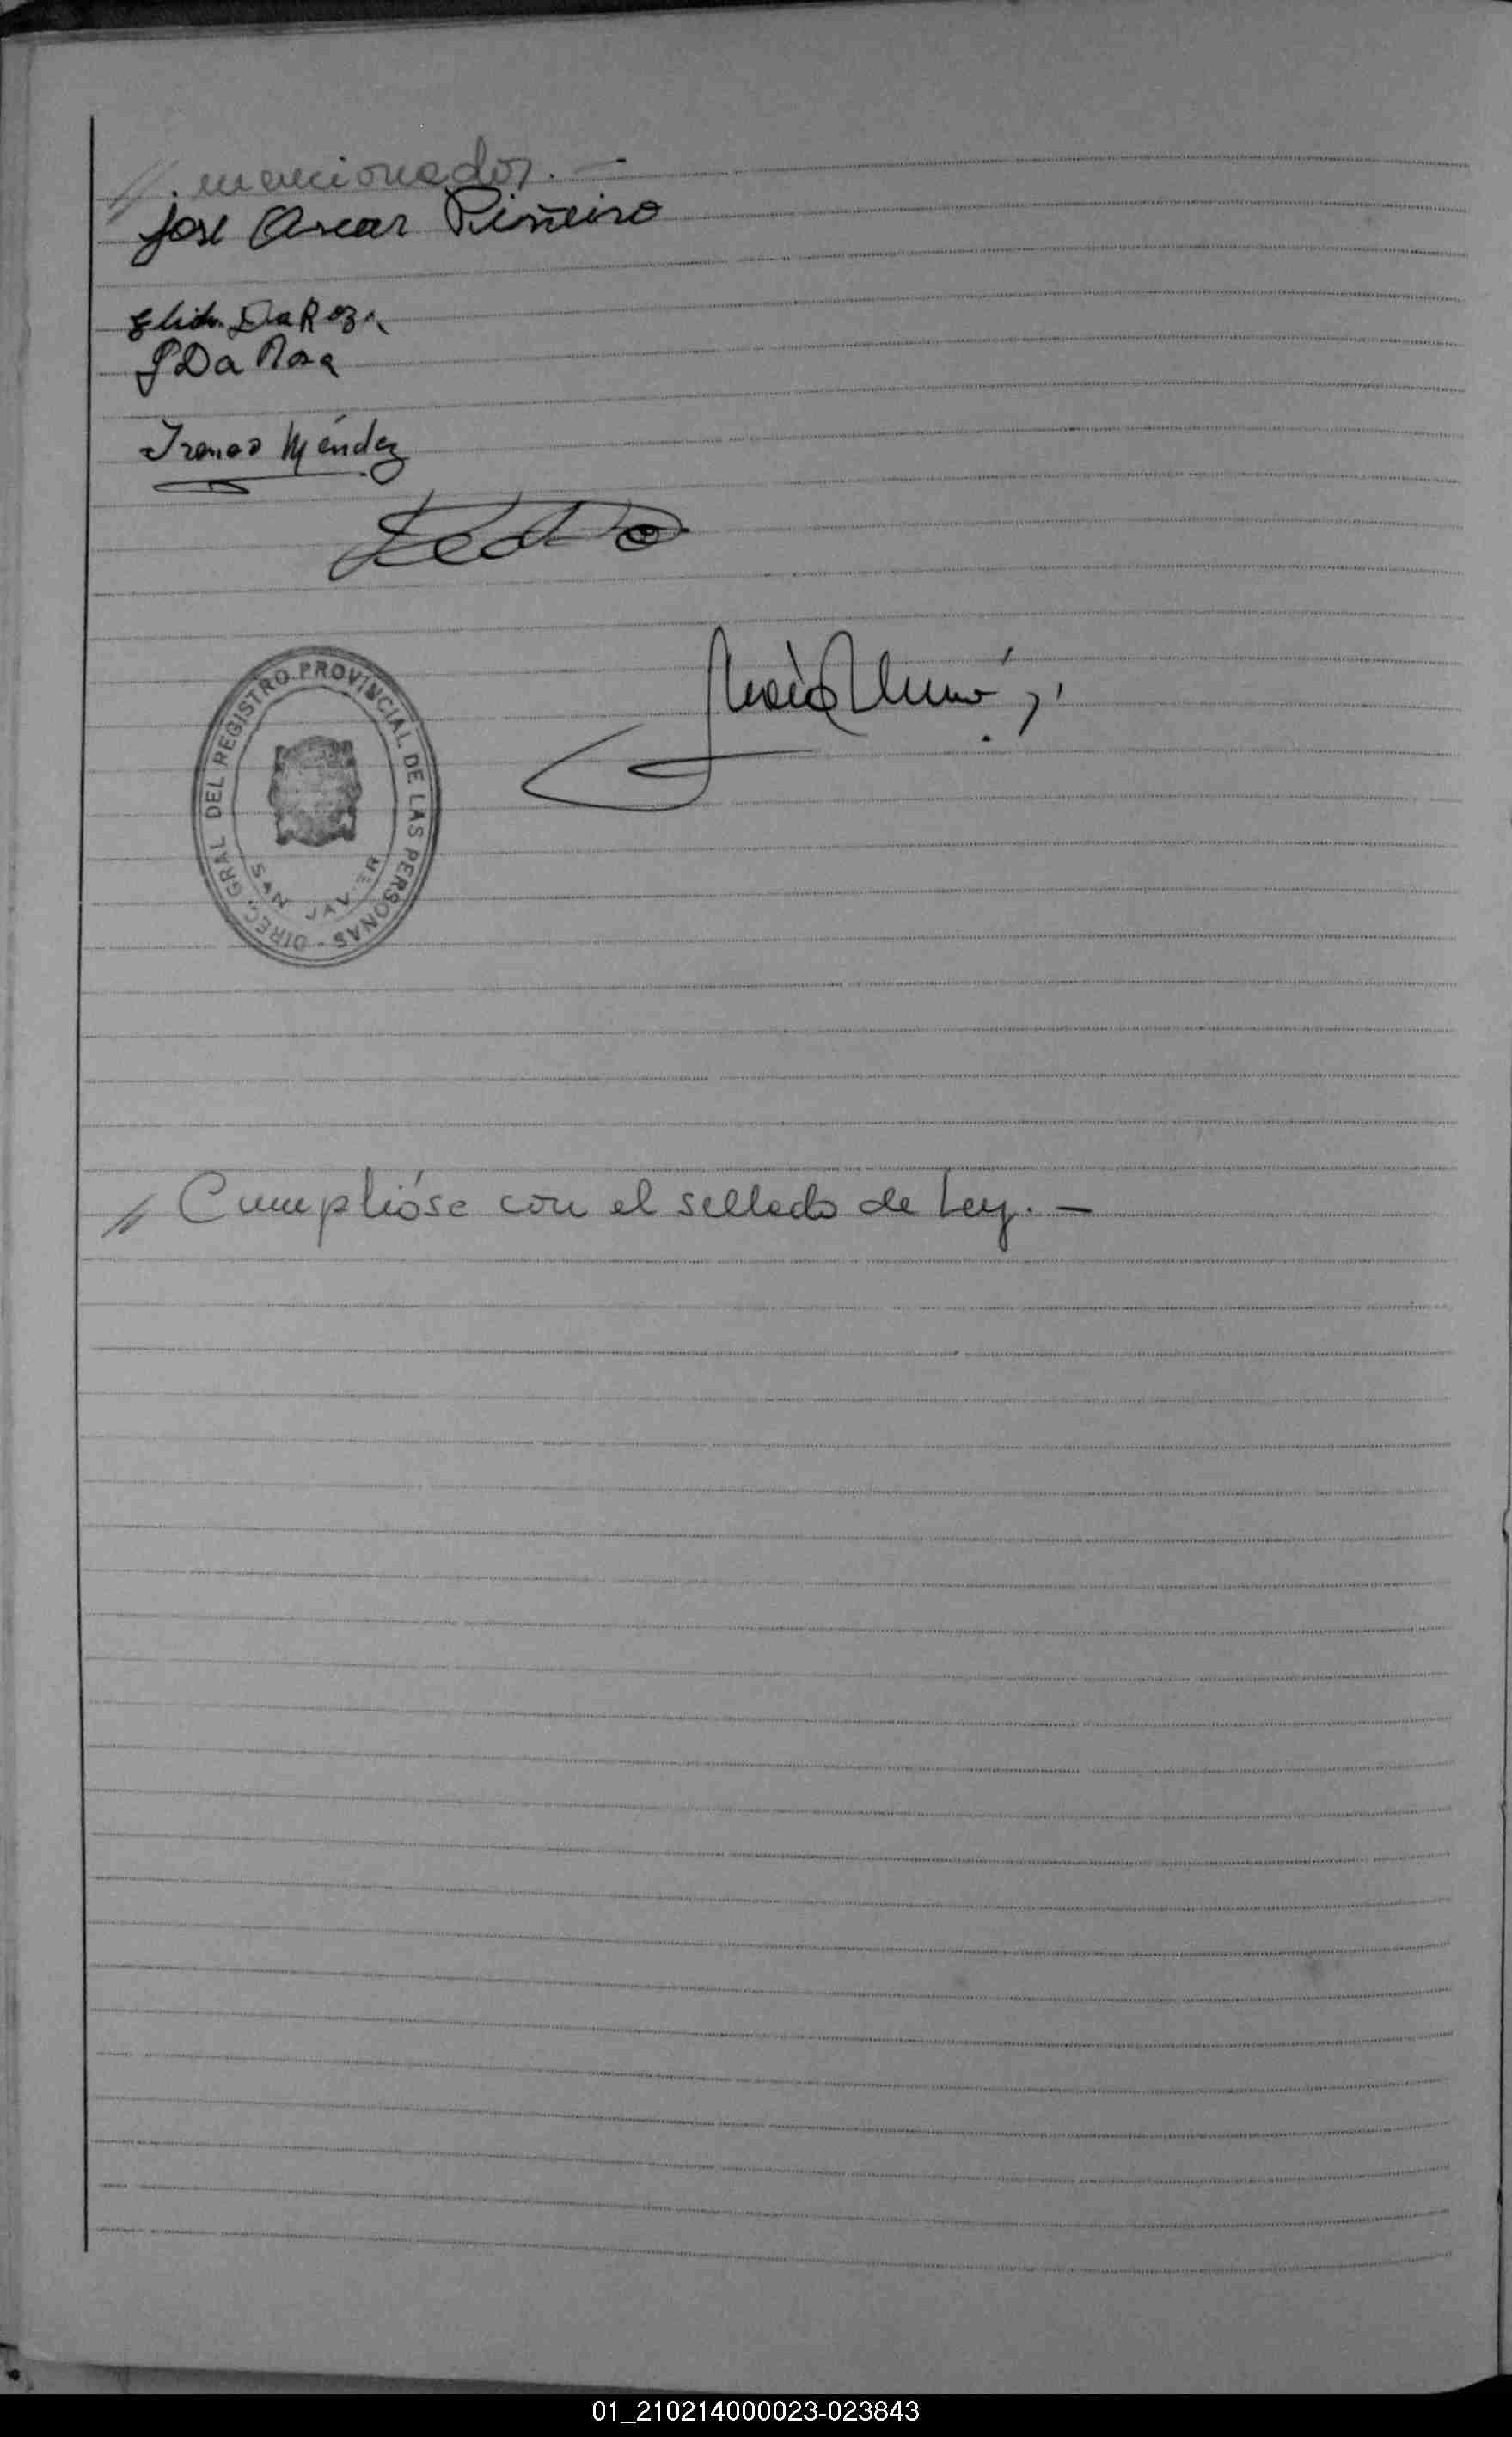 //. mencionados. —
José Oscar Piñeiro
Elida Da Roza
J Da Rosa
Ireneo Méndez
DIREC. GRAL DEL REGISTRO PROVINCIAL DE LAS PERSONAS -
SAN JAVIER
// Cumplióse con el sellado de Ley. —
01_210214000023-023843